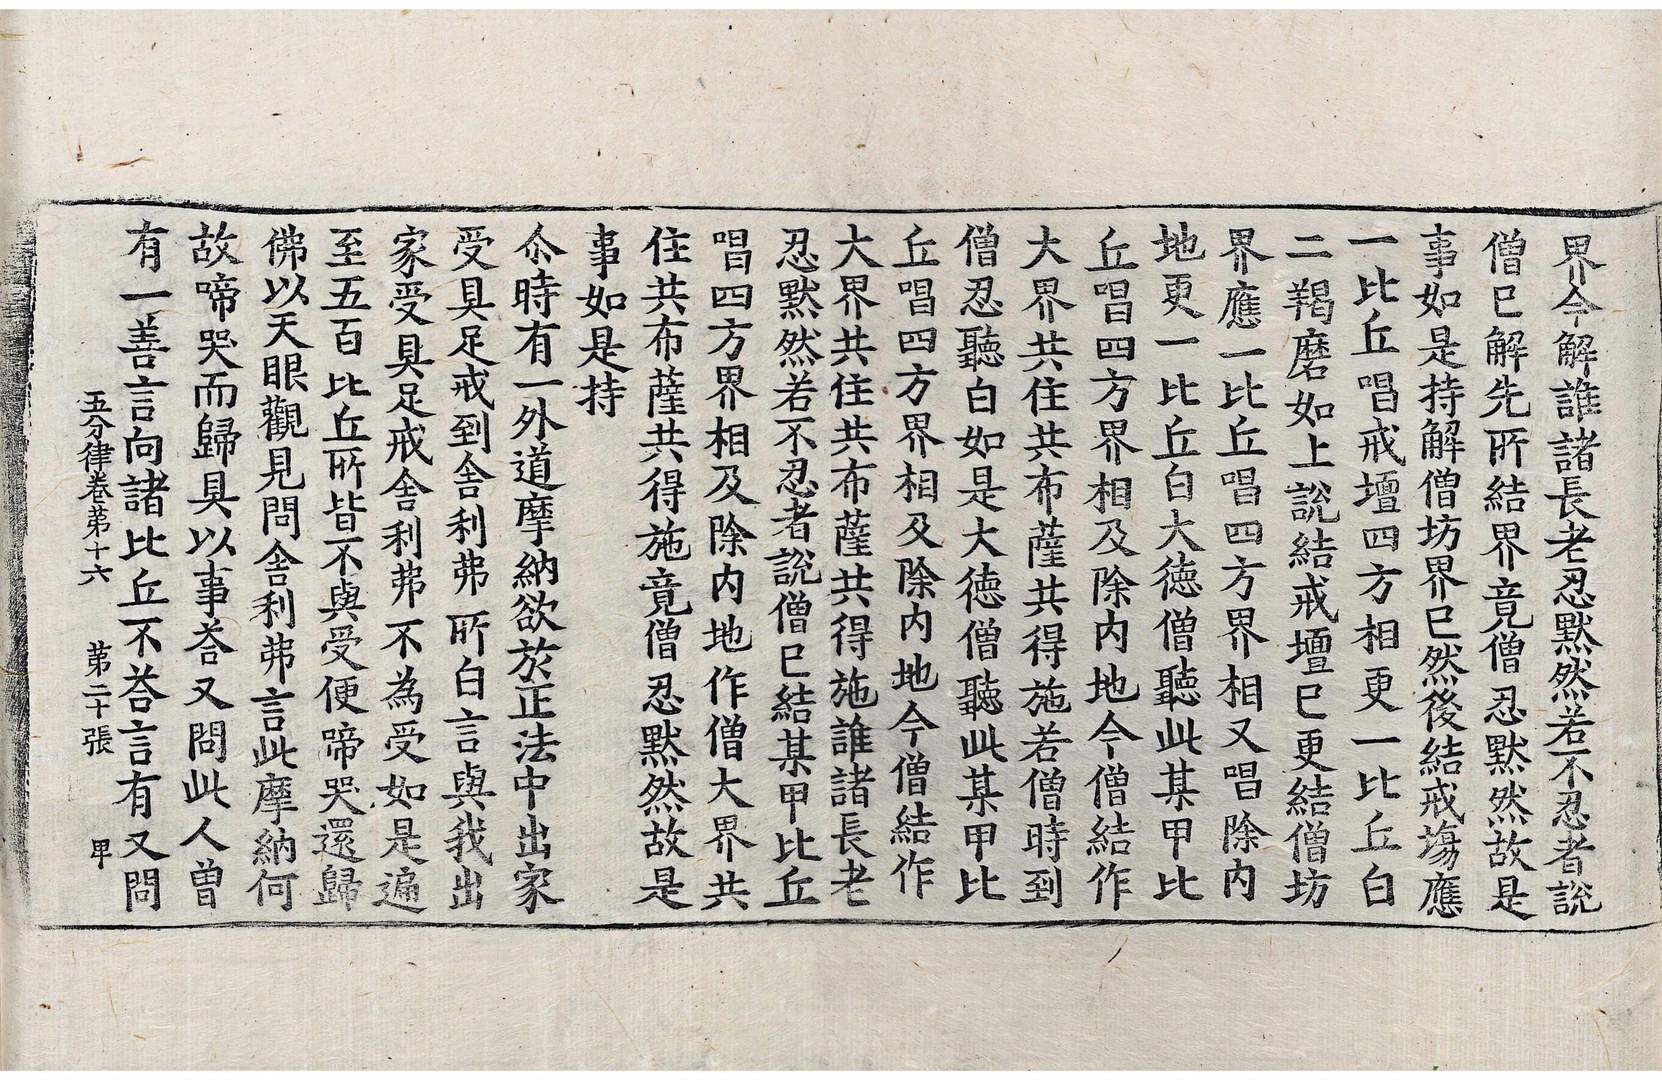 界今解誰諸長老忍黙然若不忍者說
僧已解先所結界竟僧忍黙然故是
事如是持解僧坊界已然後結戒場應
一比丘唱戒壇四方相更一比丘白
二羯磨如上說結戒壇已更結僧坊
界應一比丘唱四方界相又唱除內
地更一比丘白大德僧聽此某甲比
丘唱四方界相及除內地今僧結作
大界共住共布薩共得施若僧時到
僧忍聽白如是大德僧聽此某甲比
丘唱四方界相及除內地今僧結作
大界共住共布薩共得施誰諸長老
忍黙然若不忍者說僧已結某甲比丘
唱四方界相及除內地作僧大界共
住共布薩共得施竟僧忍黙然故是
事如是持
尒時有一外道摩納欲於正法中出家
受具足戒到舍利弗所白言與我出
家受具足戒舍利弗不為受如是遍
至五百比丘所皆不與受便啼哭還歸
佛以天眼觀見問舍利弗言此摩納何
故啼哭而歸具以事荅又問此人曽
有一善言向諸比丘不荅言有又問
五分律卷苐十六 苐二十張 甲